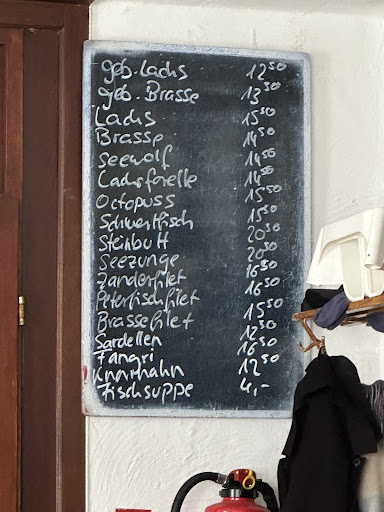 geb. Lachs 12 50
geb. Brasse 13 50
Lachs 15 50
Brasse 14 50
Seewolf 14 50
Lachsforelle 14 50
Octopuss 15 50
Schwertfisch 15 50
Steinbutt 20 50
Seezunge 20 50
Zanderfilet 16 50
Petersfischfilet 16 50
Brassefilet 15 50
Sardellen 12 50
Fangri 16 50
Knurrhahn 12 50
Fischsuppe 4,-